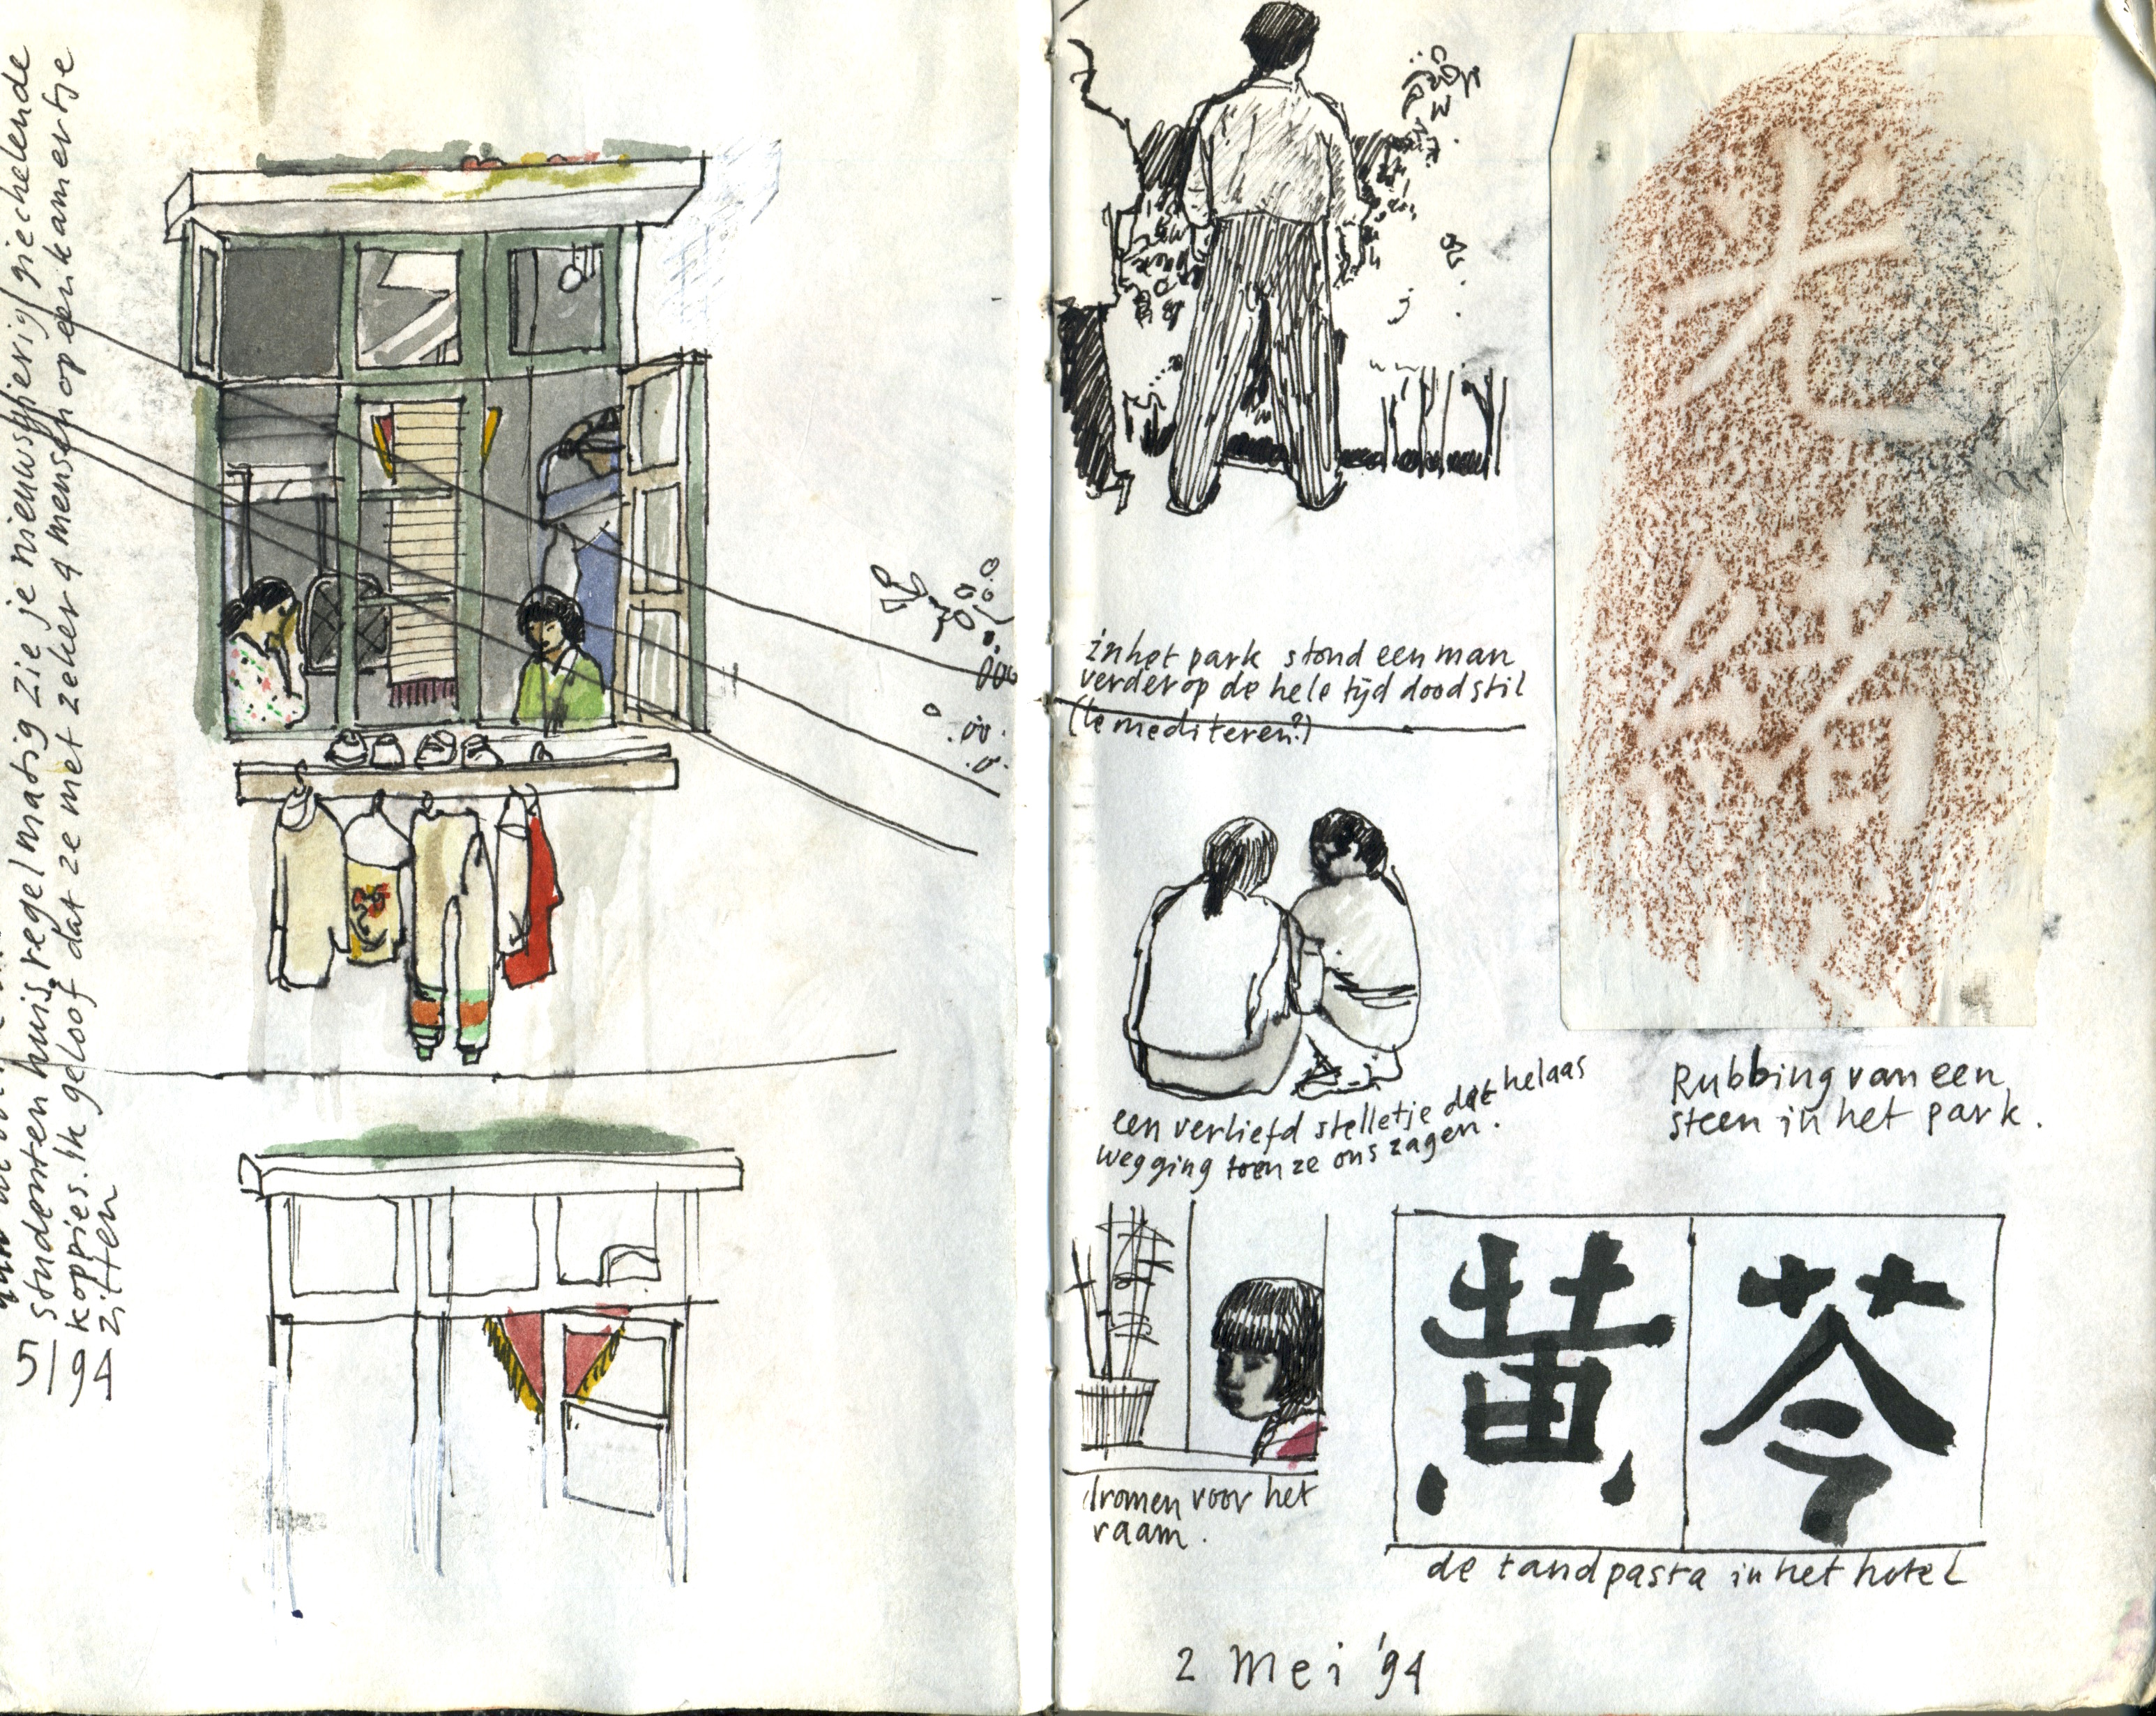 studenten huis, regelmatig zie je nieuwsgierig/giechelende
koppies. Ik geloof dat ze met zeker 4 mensen op een kamertje
zitten
5/94
in het park stond een man
verderop de hele tijd doodstil
(te mediteren?)
光
緒
een verliefd stelletje dat helaas
wegging toen ze ons zagen.
Rubbing van een
steen in het park.
dromen voor het
raam.
黄芩
de tandpasta in het hotel
2 Mei '94